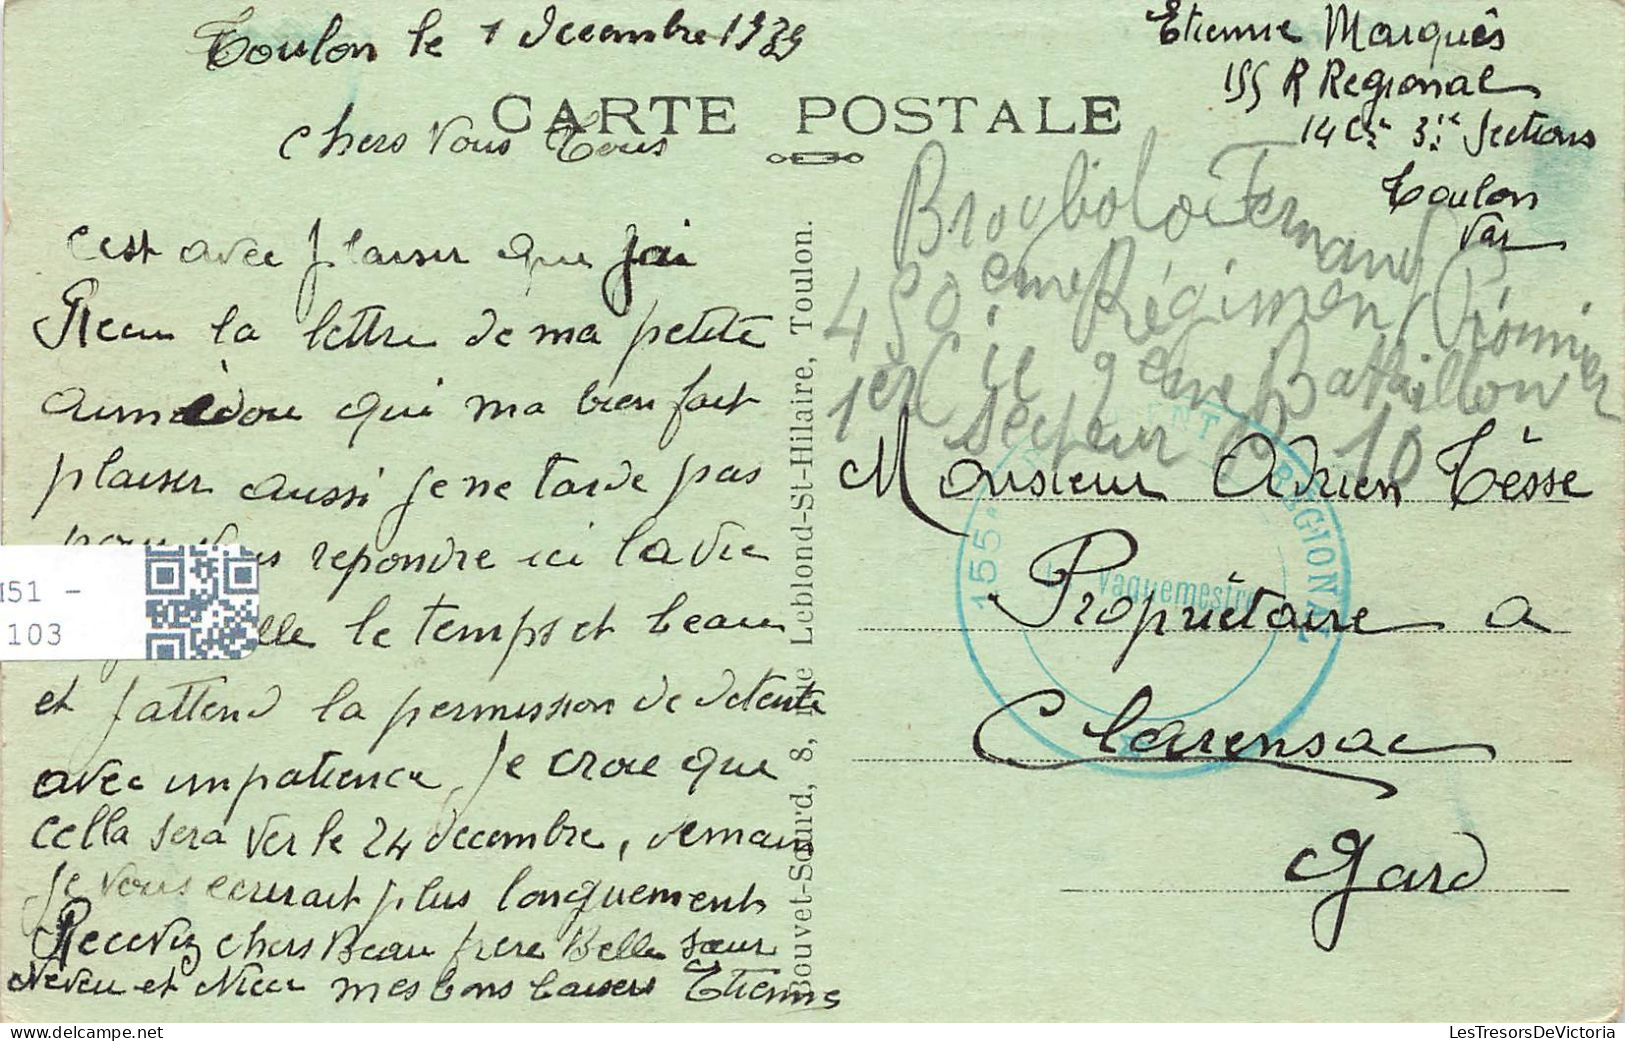 Toulon le 1 decembre 1939
Etienne Marquès
155 R Regional
14 Cie 3ie Sections
Toulon
Var
CARTE POSTALE
Chers Vous Tous
c'est avec plaisir que jai
Recu la lettre de ma petite
qui ma bien fait
plaisir aussi je ne tarde pas
pour vous repondre ici la vie
elle le temps et beau
et jattend la permission de detente
avec impatience je croie que
cella sera ver le 24 decembre, demain
je vous ecrirait plus longuements
Recevez chers Beau frere Belle sœur
Neveu et Niece mes bons baisers Etienne
Bouvet-Sourd, 8, Rue Leblond-St-Hilaire, Toulon.
Fernand
450eme Régimen Pionnier
1er Cie 9eme Bataillon
secteur 10
Monsieur Adrien Tèsse
Propriètaire a
Clarensac
Gard
155e REGIMENT REGIONAL
Vaguemestre
M51 -
103
LesTresorsDeVictoria